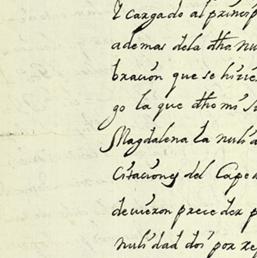 cargado al princip
ademas dela dha nu
bracion que se hizie
go la que dho mi
Magdalena la nuli
Citaciones del Cape
devieron preceder p
nulidad doi por